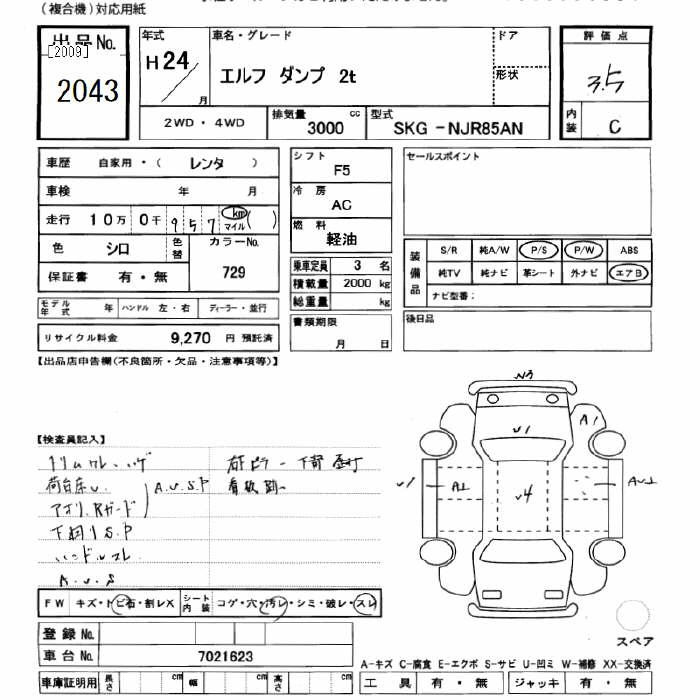 (複合機)対応用紙
出品No.
[2009]
2043
年式
H24/月
車名・グレード
エルフ ダンプ 2t
ドア
形状
評価点
3.5
内装
C
2WD・4WD
排気量
3000
cc
型式
SKG-NJR85AN
車歴 自家用・( レンタ )
車検 年 月
走行 10万 0千 957 km マイル ( )
色 シロ 色替
カラーNo.
729
保証書 有・無
モデル年式 年 ハンドル 左・右 ディーラー・並行
リサイクル料金 9,270 円 預託済
シフト
F5
冷房
AC
燃料
軽油
乗車定員 3 名
積載量 2000 kg
総重量 kg
書類期限
月 日
セールスポイント
装備品
S/R 純A/W P/S P/W ABS
純TV 純ナビ 革シート 外ナビ エアB
ナビ型番:
後日品
【出品店申告欄(不良箇所・欠品・注意事項等)】
【検査員記入】
荷台床U.
アオリ.Rガード
A.U.S.P
下廻りS.P
ハンドルスレ
A.U.S
FW キズ・トビ石・割レX
シート内装 コゲ・穴・汚レ・シミ・破レ・スレ
登録No.
車台No. 7021623
車庫証明用 長さ cm 幅 cm 高さ cm
U1
A1
U4
スペア
A-キズ C-腐食 E-エクボ S-サビ U-凹ミ W-補修 XX-交換済
工具 有・無 ジャッキ 有・無